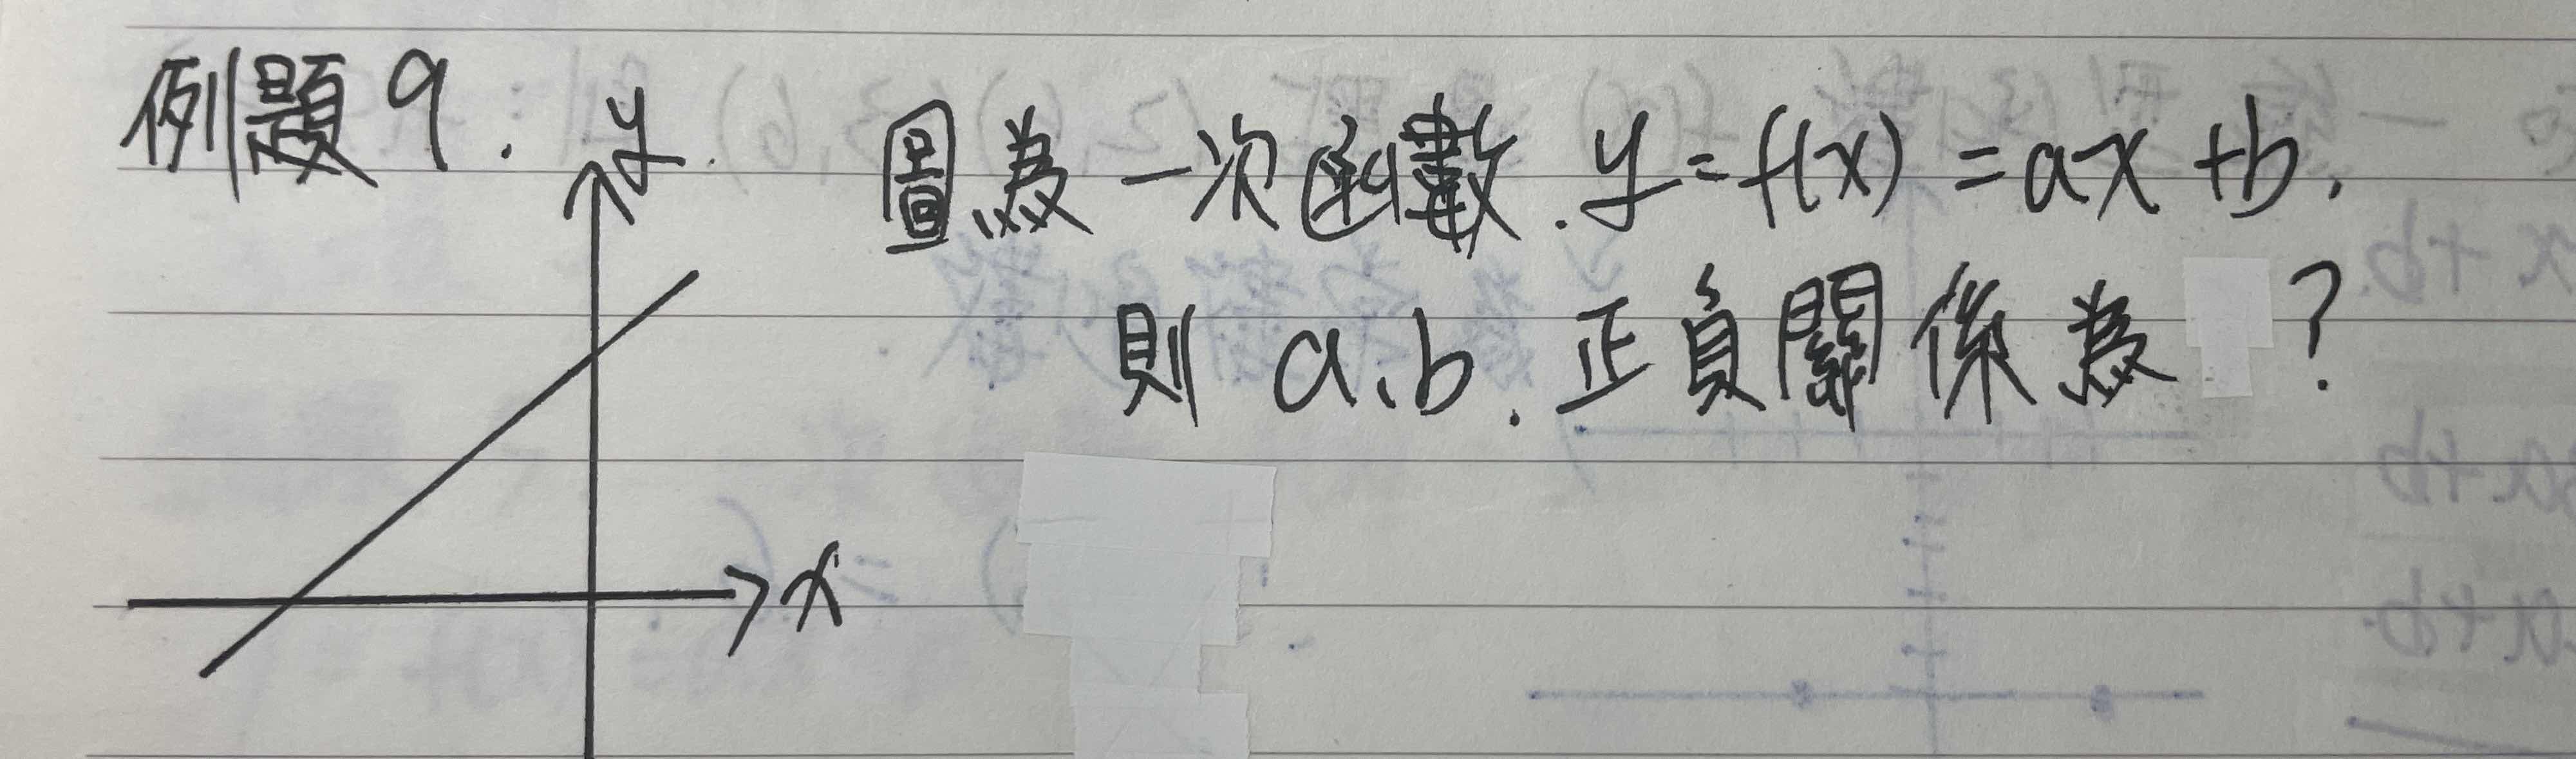 例題9.
y
圖為一次函數.y=f(x)=ax+b.
則a、b.正負關係為 ?
x